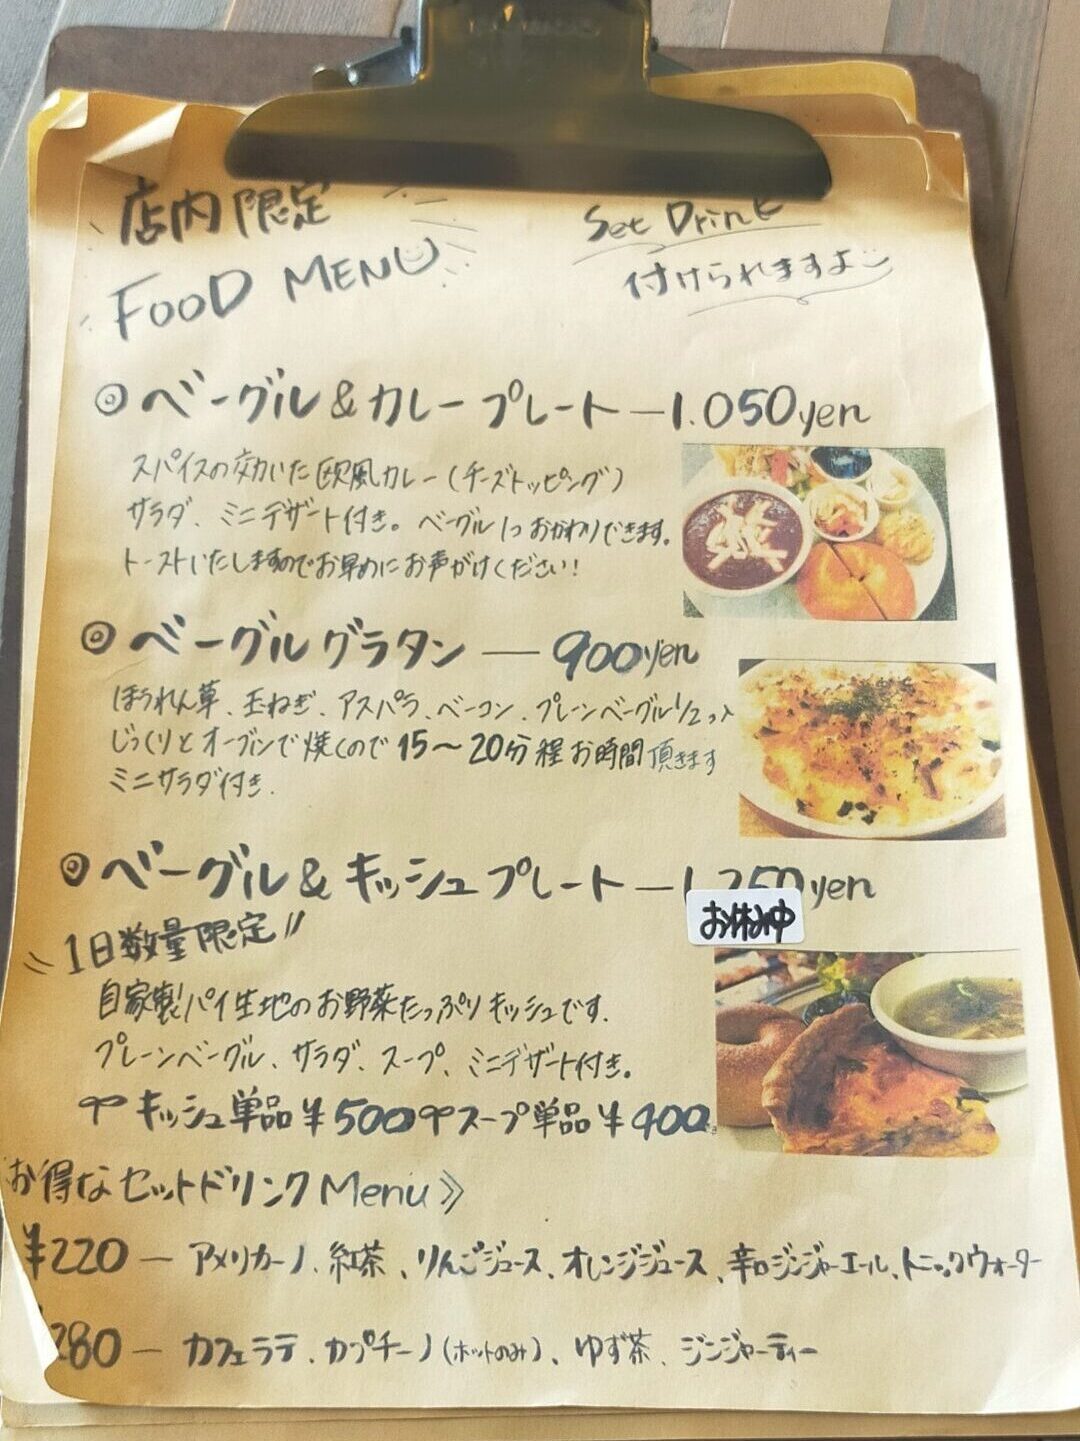 店内限定
FOOD MENU
Set Drink
付けられますよ
◎ベーグル&カレープレート—1.050yen
スパイスの効いた欧風カレー(チーズトッピング)
サラダ、ミニデザート付き。ベーグル1つおかわりできます。
トーストいたしますのでお早めにお声がけください!
◎ベーグルグラタン—900yen
ほうれん草、玉ねぎ、アスパラ、ベーコン、プレーンベーグル1/2コ入
じっくりとオーブンで焼くので15〜20分程お時間頂きます
ミニサラダ付き.
◎ベーグル&キッシュプレート—1.250yen
お休み中
1日数量限定!!
自家製パイ生地のお野菜たっぷりキッシュです.
プレーンベーグル、サラダ、スープ、ミニデザート付き。
キッシュ単品¥500 スープ単品¥400
お得なセットドリンクMenu》
¥220—アメリカーノ、紅茶、りんごジュース、オレンジジュース、辛口ジンジャーエール、トニックウォーター
280—カフェラテ、カプチーノ(ホットのみ)、ゆず茶、ジンジャーティー